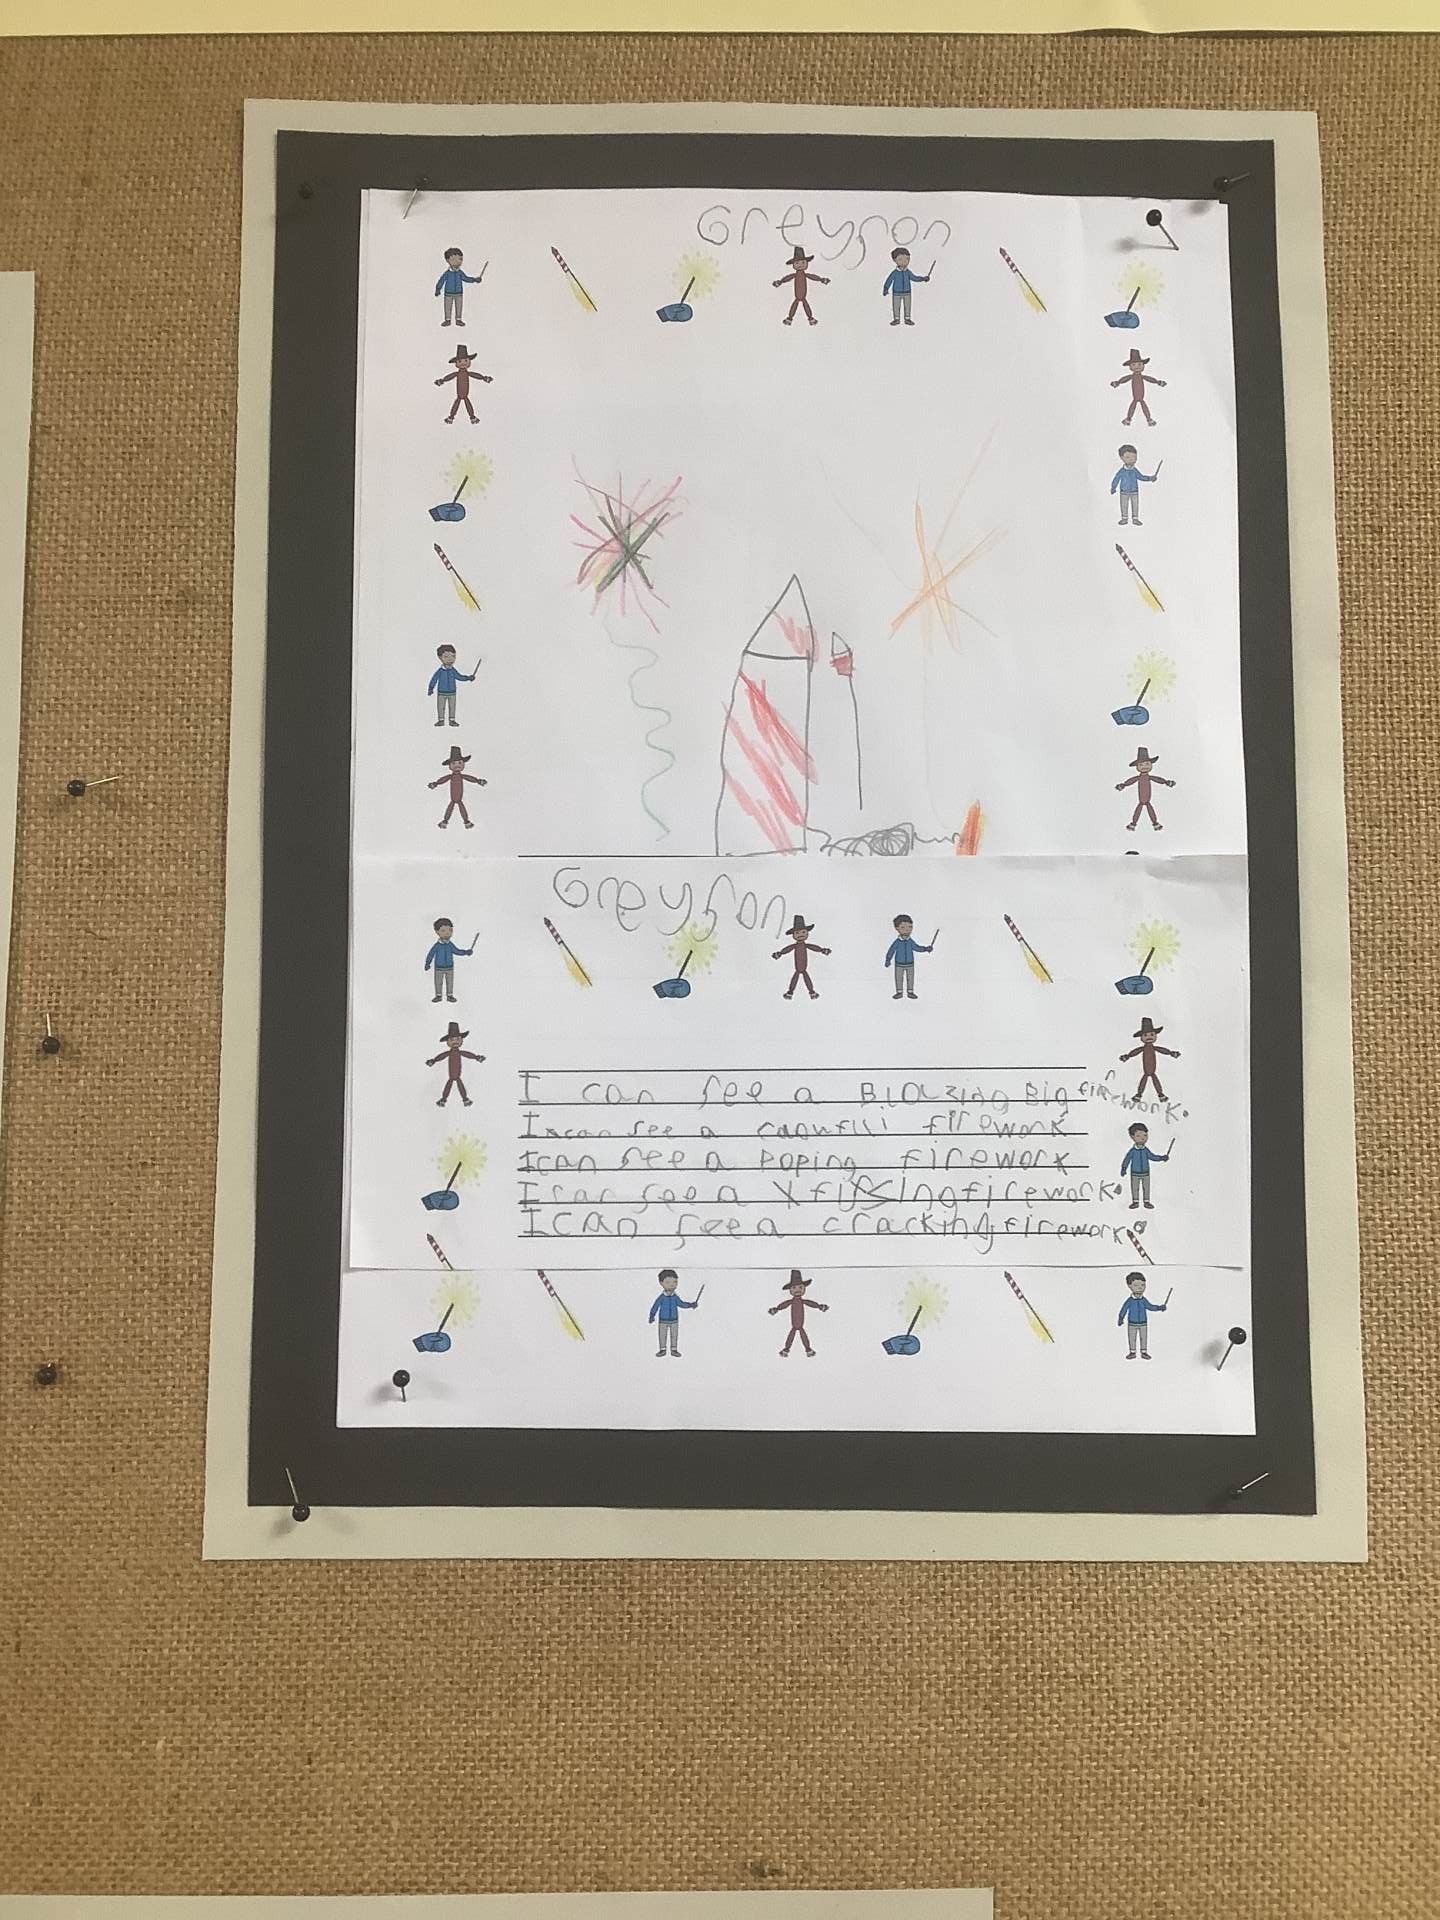 Greyson
Greyson
I can see a Blazing Big firework.
I can see a firework
I can see a Poping firework
I can see a firework.
I can see a cracking firework.